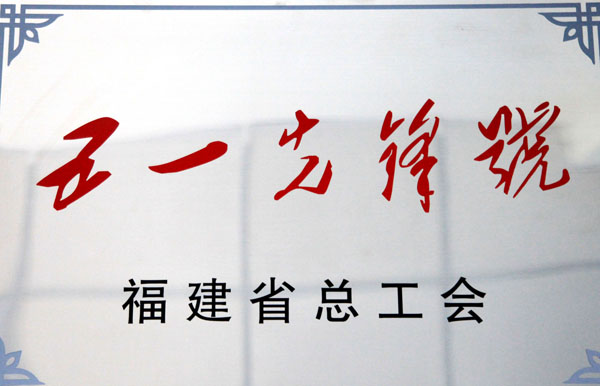 五一先锋號
福建省总工会